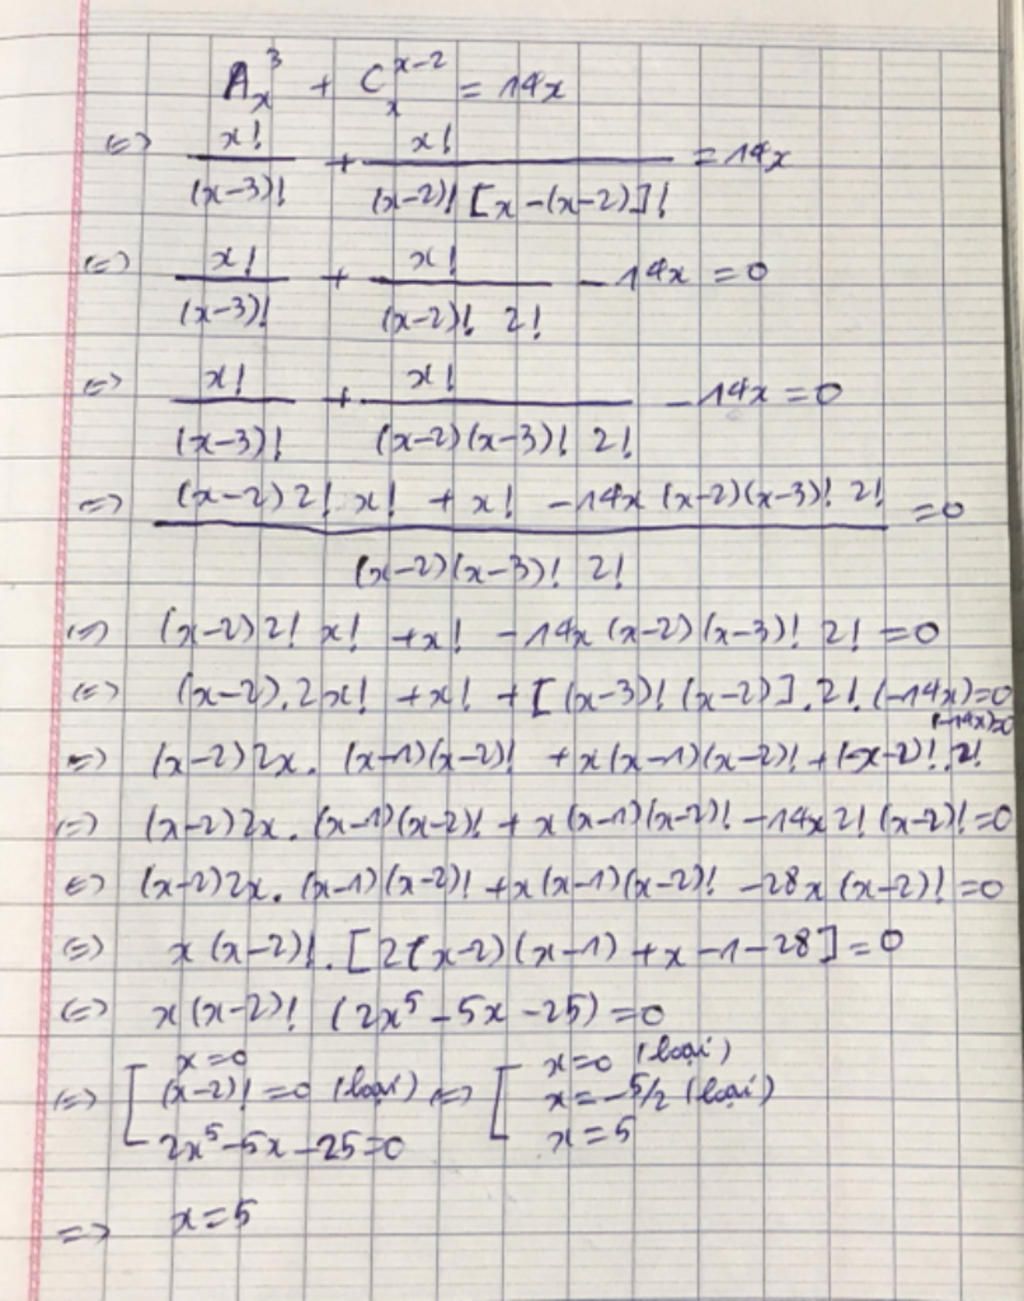 A_x^3 + C_x^{x-2} = 14x
<=> x!/(x-3)! + x!/((x-2)! [x-(x-2)]!) = 14x
<=> x!/(x-3)! + x!/((x-2)! 2!) - 14x = 0
<=> x!/(x-3)! + x!/((x-2)(x-3)! 2!) - 14x = 0
<=> ((x-2) 2! x! + x! - 14x (x-2)(x-3)! 2!)/((x-2)(x-3)! 2!) = 0
<=> (x-2) 2! x! + x! - 14x (x-2)(x-3)! 2! = 0
<=> (x-2).2x! + x! + [(x-3)! (x-2)].2!.(-14x)=0
<=> (x-2)2x. (x-1)(x-2)! + x(x-1)(x-2)! + (x-2)!.2! (-14x)=0
<=> (x-2)2x. (x-1)(x-2)! + x(x-1)(x-2)! - 14x 2! (x-2)! = 0
<=> (x-2)2x. (x-1)(x-2)! + x(x-1)(x-2)! - 28x (x-2)! = 0
<=> x(x-2)!. [2(x-2)(x-1) + x-1-28] = 0
<=> x(x-2)! (2x^5 - 5x - 25) = 0
<=> [ x=0 <=> [ x=0 (loại)
(x-2)! = 0 (loại) x = -5/2 (loại)
2x^5-5x-25=0 x=5
=> x=5